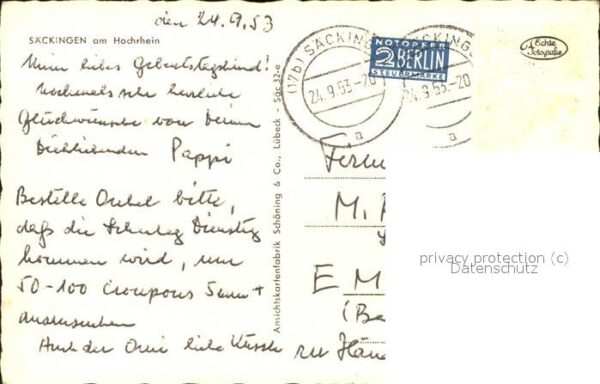 den 24.9.53
SÄCKINGEN am Hochrhein
Mein liebes Geburtstagskind!
Nochmals sehr herzliche
Glückwünsche von Deinem
Dichliebenden Pappi
Bestelle Onkel bitte,
daß die Dienstag
kommen wird, um
50-100 Croupons Samt
auszusuchen
Auch der Omi liebe Küsse
Ansichtskartenfabrik Schöning & Co., Lübeck - Säc 32-e
(17b) SÄCKINGEN
24.9.53.-20
a
NOTOPFER
2 BERLIN
STEUERMARKE
SÄCKINGEN
24.9.53.-20
a
Echte
Fotografie
M.
EM
(Ba
privacy protection (c)
Datenschutz